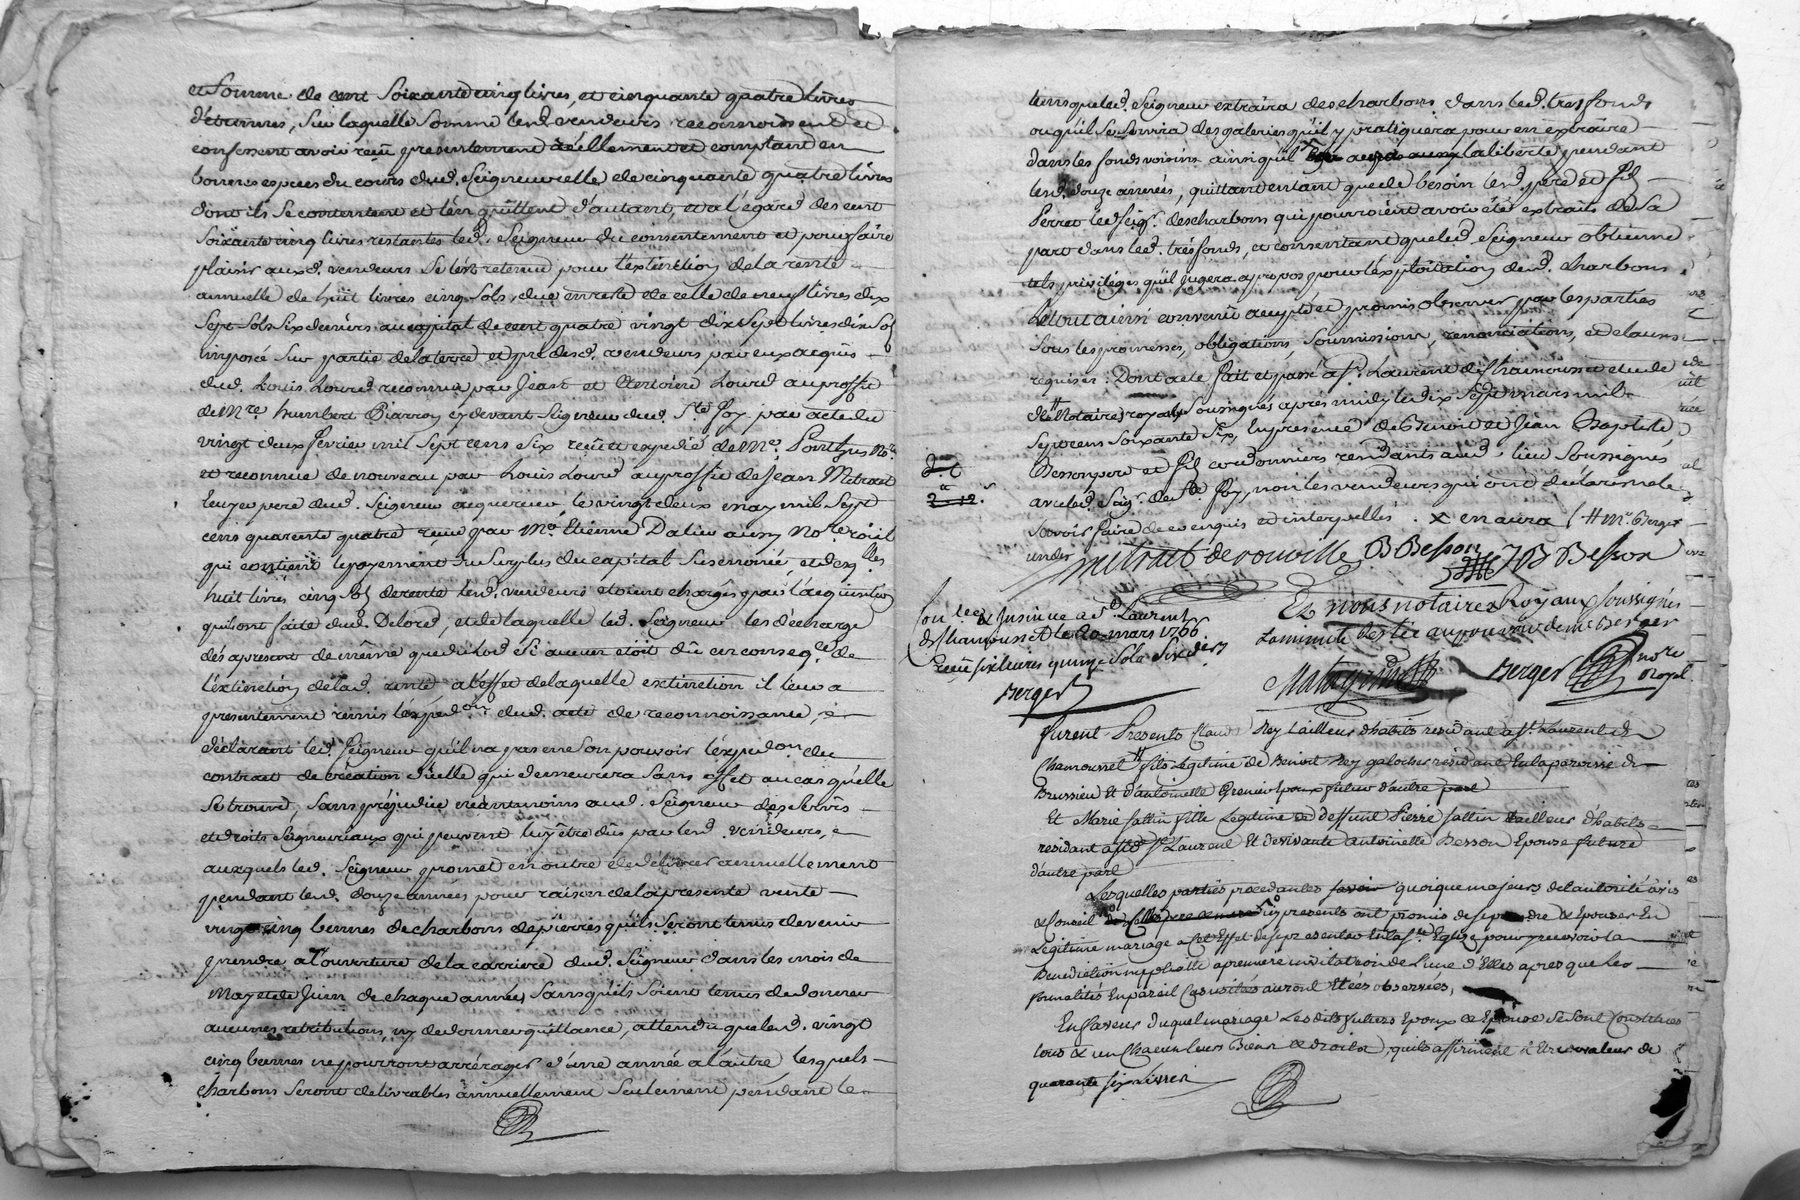 et somme de cent soixante cinq livres, et cinquante quatre livres
d'étrennes, sur laquelle somme lesd. vendeurs reconnoissent et
confessent avoir reçu presentement réellement et comptant en
bonnes especes du cours dud. Seigneur celle de cinquante quatre livres
dont ils se contentent et l'en quittent d'autant, et a l'égard des cent
soixante cinq livres restantes led. Seigneur du consentement et pour faire
plaisir auxd. vendeurs se l'est retenue pour l'extinction de la rente
annuelle de huit livres cinq sols, due en reste de celle de neuf livres dix
sept sols six deniers au capital de cent quatre vingt dix sept livres dix sol
imposé sur partie de la terre et pré desd. vendeurs par eux acquis
dud. Louis Lourd reconnue par Jean et Antoine Lourd au proffit
de Mre. humbert Biarroy cy devant Seigneur dud. Ste Foy par acte du
vingt deux fevrier mil sept cens six reçu et expedié de Me. Ponthus Nore
et reconnue de nouveau par Louis Lourd au proffit de Jean Mitrait
Ecuyer pere dud. Seigneur acquereur, le vingt deux may mil sept
cens quarente quatre reçu par Me. Etienne Dalieu aussy Nore roial
qui contient le payement du surplus du capital susenoncé, et desqlles
huit livres cinq sols de rente lesd. vendeurs étoient chargés par l'acquisition
qu'ils ont faite dud. Delord, et de laquelle led. Seigneur les décharge
dés apresent de même que dud. Lourd si aucun étoit dû en conseqce de
l'extinction de lad. rente, a l'effet de laquelle extinction il leur a
presentement remis l'expedon dud. acte de reconnoissance, en
déclarant led. Seigneur qu'il n'a pas en son pouvoir l'expedon du
contrat de création d'icelle qui demeurera sans effet au cas qu'elle
se trouve, sans préjudice neantmoins aud. Seigneur des servis
et droits seigneuriaux qui peuvent luy être dûs par lesd. vendeurs, e
auxquels led. Seigneur promet en outre de délivrer annuellement
pendant lesd. douze années pour raison de la presente vente
vingt cinq bennes de charbons de pierres qu'ils seront tenus de venir
prendre a l'ouverture de la carriere dud. Seigneur dans les mois de
May et de Juin de chaque année, sans qu'ils soient tenus de donner
aucunes retributions, ny de donner quittance, attendu que lesd. vingt
cinq bennes ne pourront arrérager d'une année a l'autre lesquels
charbons seront delivrables annuellement seulement pendant le
tems que led. Seigneur extraira des charbons dans led. tres fonds
ou qu'il se servira des galeries qu'il y pratiquera pour en extraire
dans les fonds voisins ainsi qu'il x aussy la liberté pendant
lesd. douze années, quittant en tant que de besoin lesd. pere et fils
Perret led. seigr. des charbons qui pourroient avoir été extraits de sa
part dans led. trés fonds, et consentant que led. Seigneur obtienne
tels privilèges qu'il jugera a propos pour l'exploitation desd. charbons
Le tout ainsi convenu accepté et promis observer par les parties
sous les promesses, obligations, soumissions, renonciations, et clauses
requises: Dont acte fait et passé a St. Laurent de Chamousset etude de
# Notaires royaux soussignés aprés midy le dix sept mars mil
sept cens soixante six, En presence de Benoit et Jean Baptiste
Besson pere et fils cordonniers residants aud. lieu soussignés
avec led. Seigr. de Ste Foy, non les vendeurs qui ont déclaré ne le
savoir faire de ce enquis et interpellés. x en aura / # Mr. Berger
un des
mitrait de rouville B Besson JB Besson
Controllé & Insinué a St Laurent
de Chamousset le 20 mars 1766
Reçu six livres quinze sols six drs
Berger
Et nous notaires Royaux soussignés
La minute est restée au pouvoir de Me Berger
Berger nore
Royal
furent Presents Claude Rey tailleur d'habits residant a St. Laurent de
Chamousset fils Legitime de Benoit Rey galocher residant En la paroisse de
Brussieu Et d'antoinette Epoux futur d'autre part
Et Marie fallin fille Legitime de deffunt Pierre fallin tailleur d'habits
residant aud. St Laurent Et de vivante antoinette Besson Epouse future
d'autre part
Lesquelles parties procedantes quoique majeurs de l'autorité avis
& Conseil presents ont promis de se prendre & Epouser En
Legitime mariage a cet Effet de se presenter En la Ste Eglise pour y recevoir la
Benediction nuptialle a premiere invitation de L'une d'Elles apres que Les
formalités En pareil Cas usitées auront Etées observées,
En faveur duquel mariage Les dits futurs Epoux & Epouse se sont Constitués
tous & un Chacun leurs Biens & droits, qu'ils affirment Etre valeur de
quarante six Livres